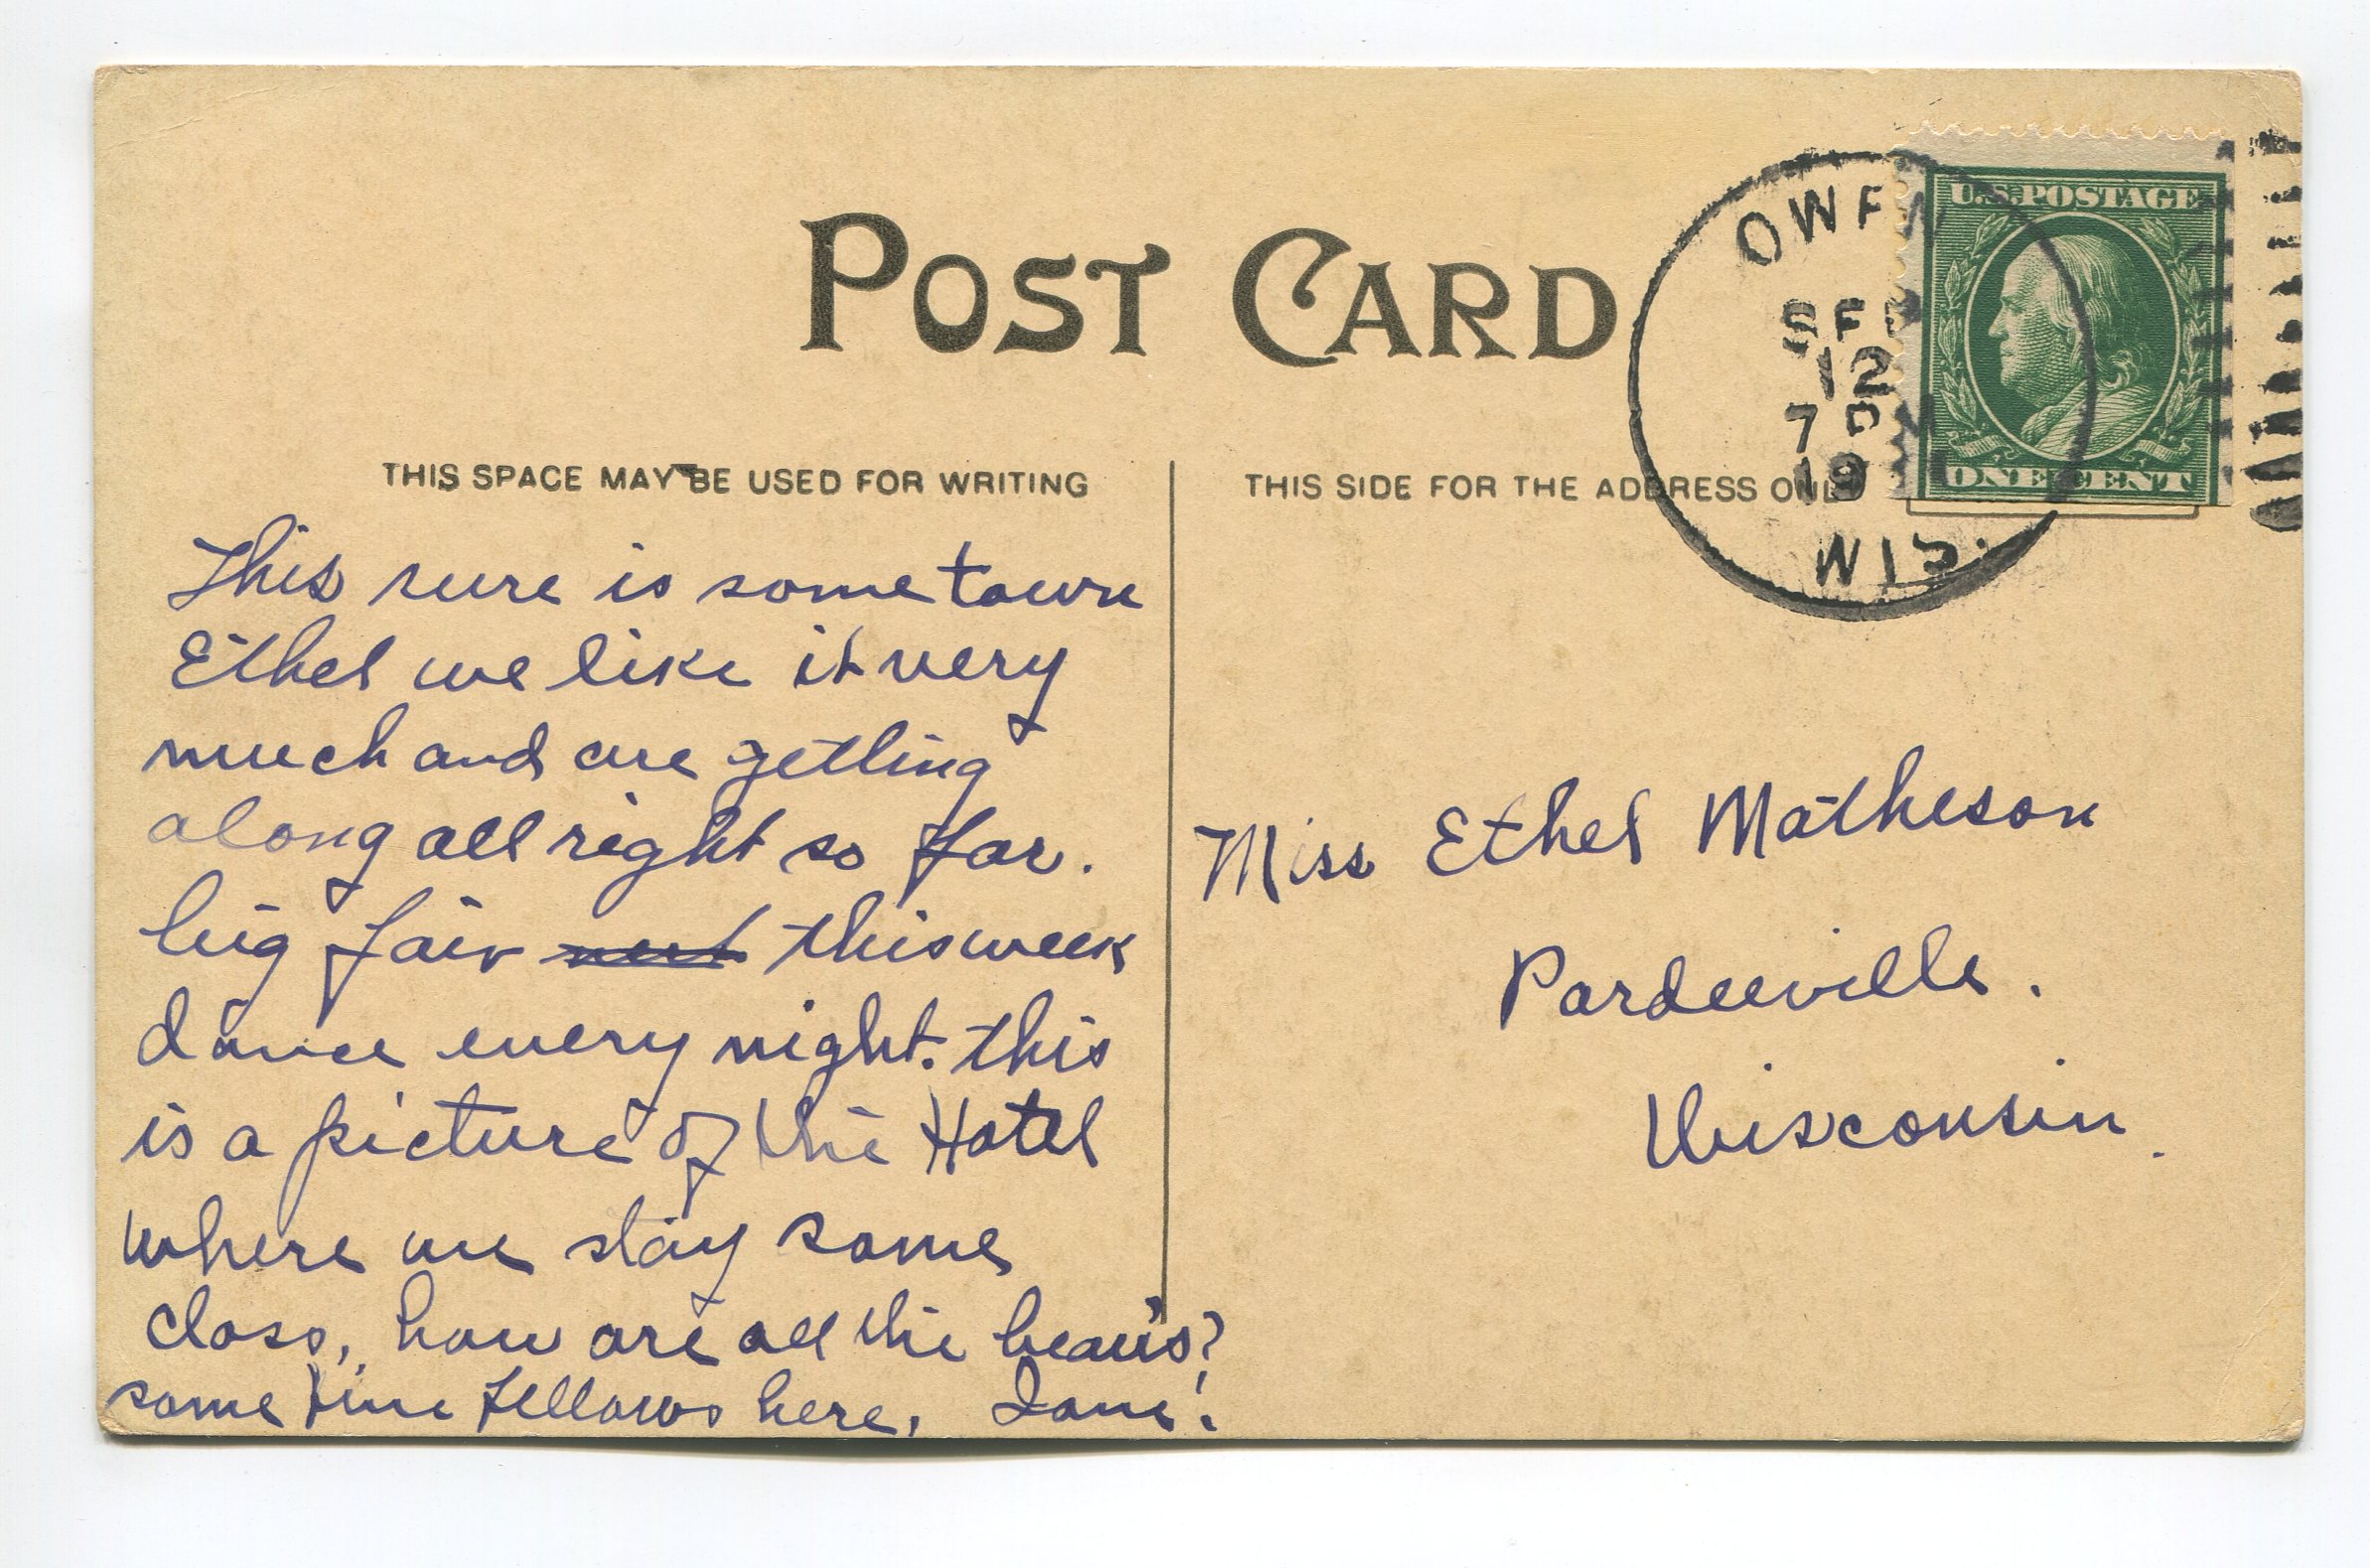 POST CARD
THIS SPACE MAY BE USED FOR WRITING
This sure is some town
Ethel we like it very
much and are getting
along all right so far.
big fair next this week
dance every night. this
is a picture of the Hotel
where we stay some
class, how are all the beau's?
some fine fellows here.
THIS SIDE FOR THE ADDRESS ONLY
OWEN
SEP
12
7 P
19
WIS.
U.S. POSTAGE
ONE CENT
Miss Ethel Matheson
Pardeeville.
Wisconsin.